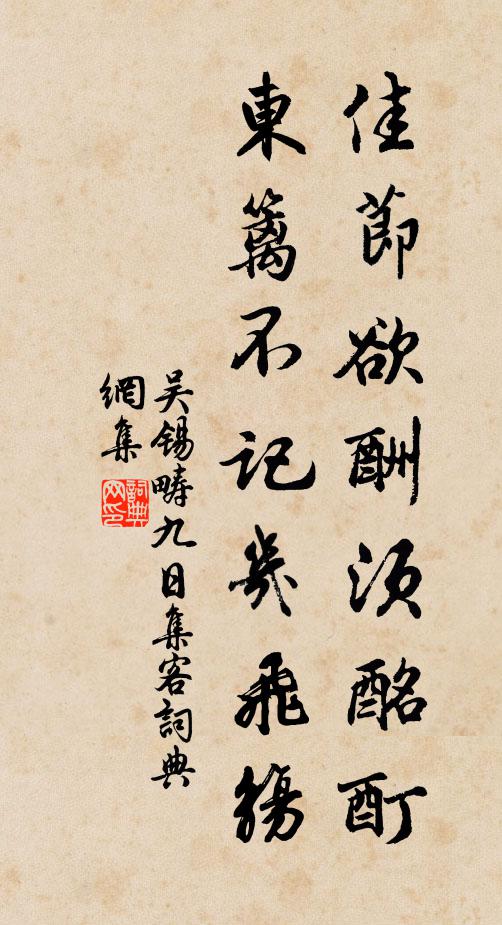 佳節欲酬須酩酊
東篱不記幾飛觴
吴錫疇九日集客詞典
網集
詞典網印